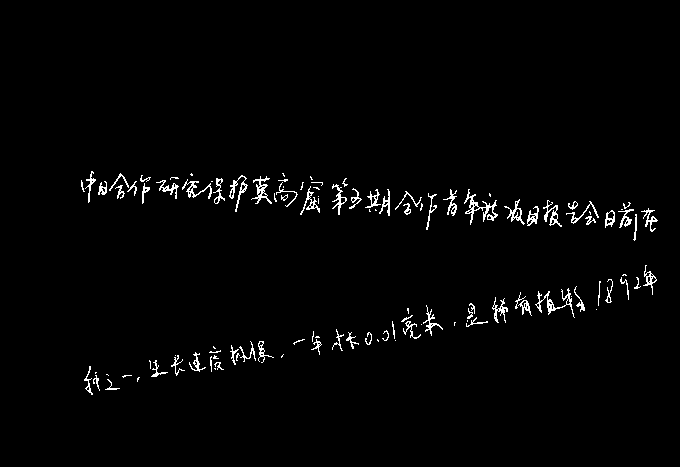 中日合作研究保护莫高窟第五期合作首年度项目报告会日前在
种之一,生长速度极慢,一年才长0.01毫米,是稀有植物.1892年